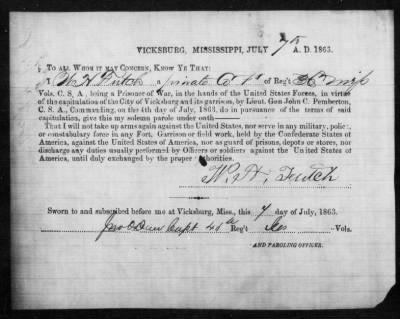 VICKSBURG, MISSISSIPPI, JULY 7th A. D. 1863.
TO ALL WHOM IT MAY CONCERN, KNOW YE THAT:
I, W. H. a private Co of Reg't 36 Miss
Vols. C. S. A., being a Prisoner of War, in the hands of the United States Forces, in virtue
of the capitulation of the City of Vicksburg and its garrison, by Lieut. Gen John C. Pemberton,
C. S. A., Commanding, on the 4th day of July, 1863, do in pursuance of the terms of said
capitulation, give this my solemn parole under oath—
That I will not take up arms again against the United States, nor serve in any military, police,
or constabulary force in any Fort, Garrison or field work, held by the Confederate States of
America, against the United States of America, nor as guard of prisons, depots or stores, nor
discharge any duties usually performed by Officers or soldiers against the United States of
America, until duly exchanged by the proper authorities.
W. H.
Sworn to and subscribed before me at Vicksburg, Miss., this 7 day of July, 1863.
Capt 45th Reg't Ills Vols.
AND PAROLING OFFICER.